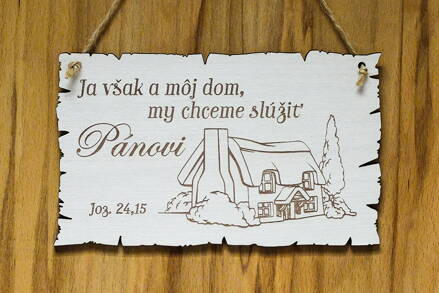 Ja však a môj dom,
my chceme slúžiť
Pánovi
Joz. 24,15